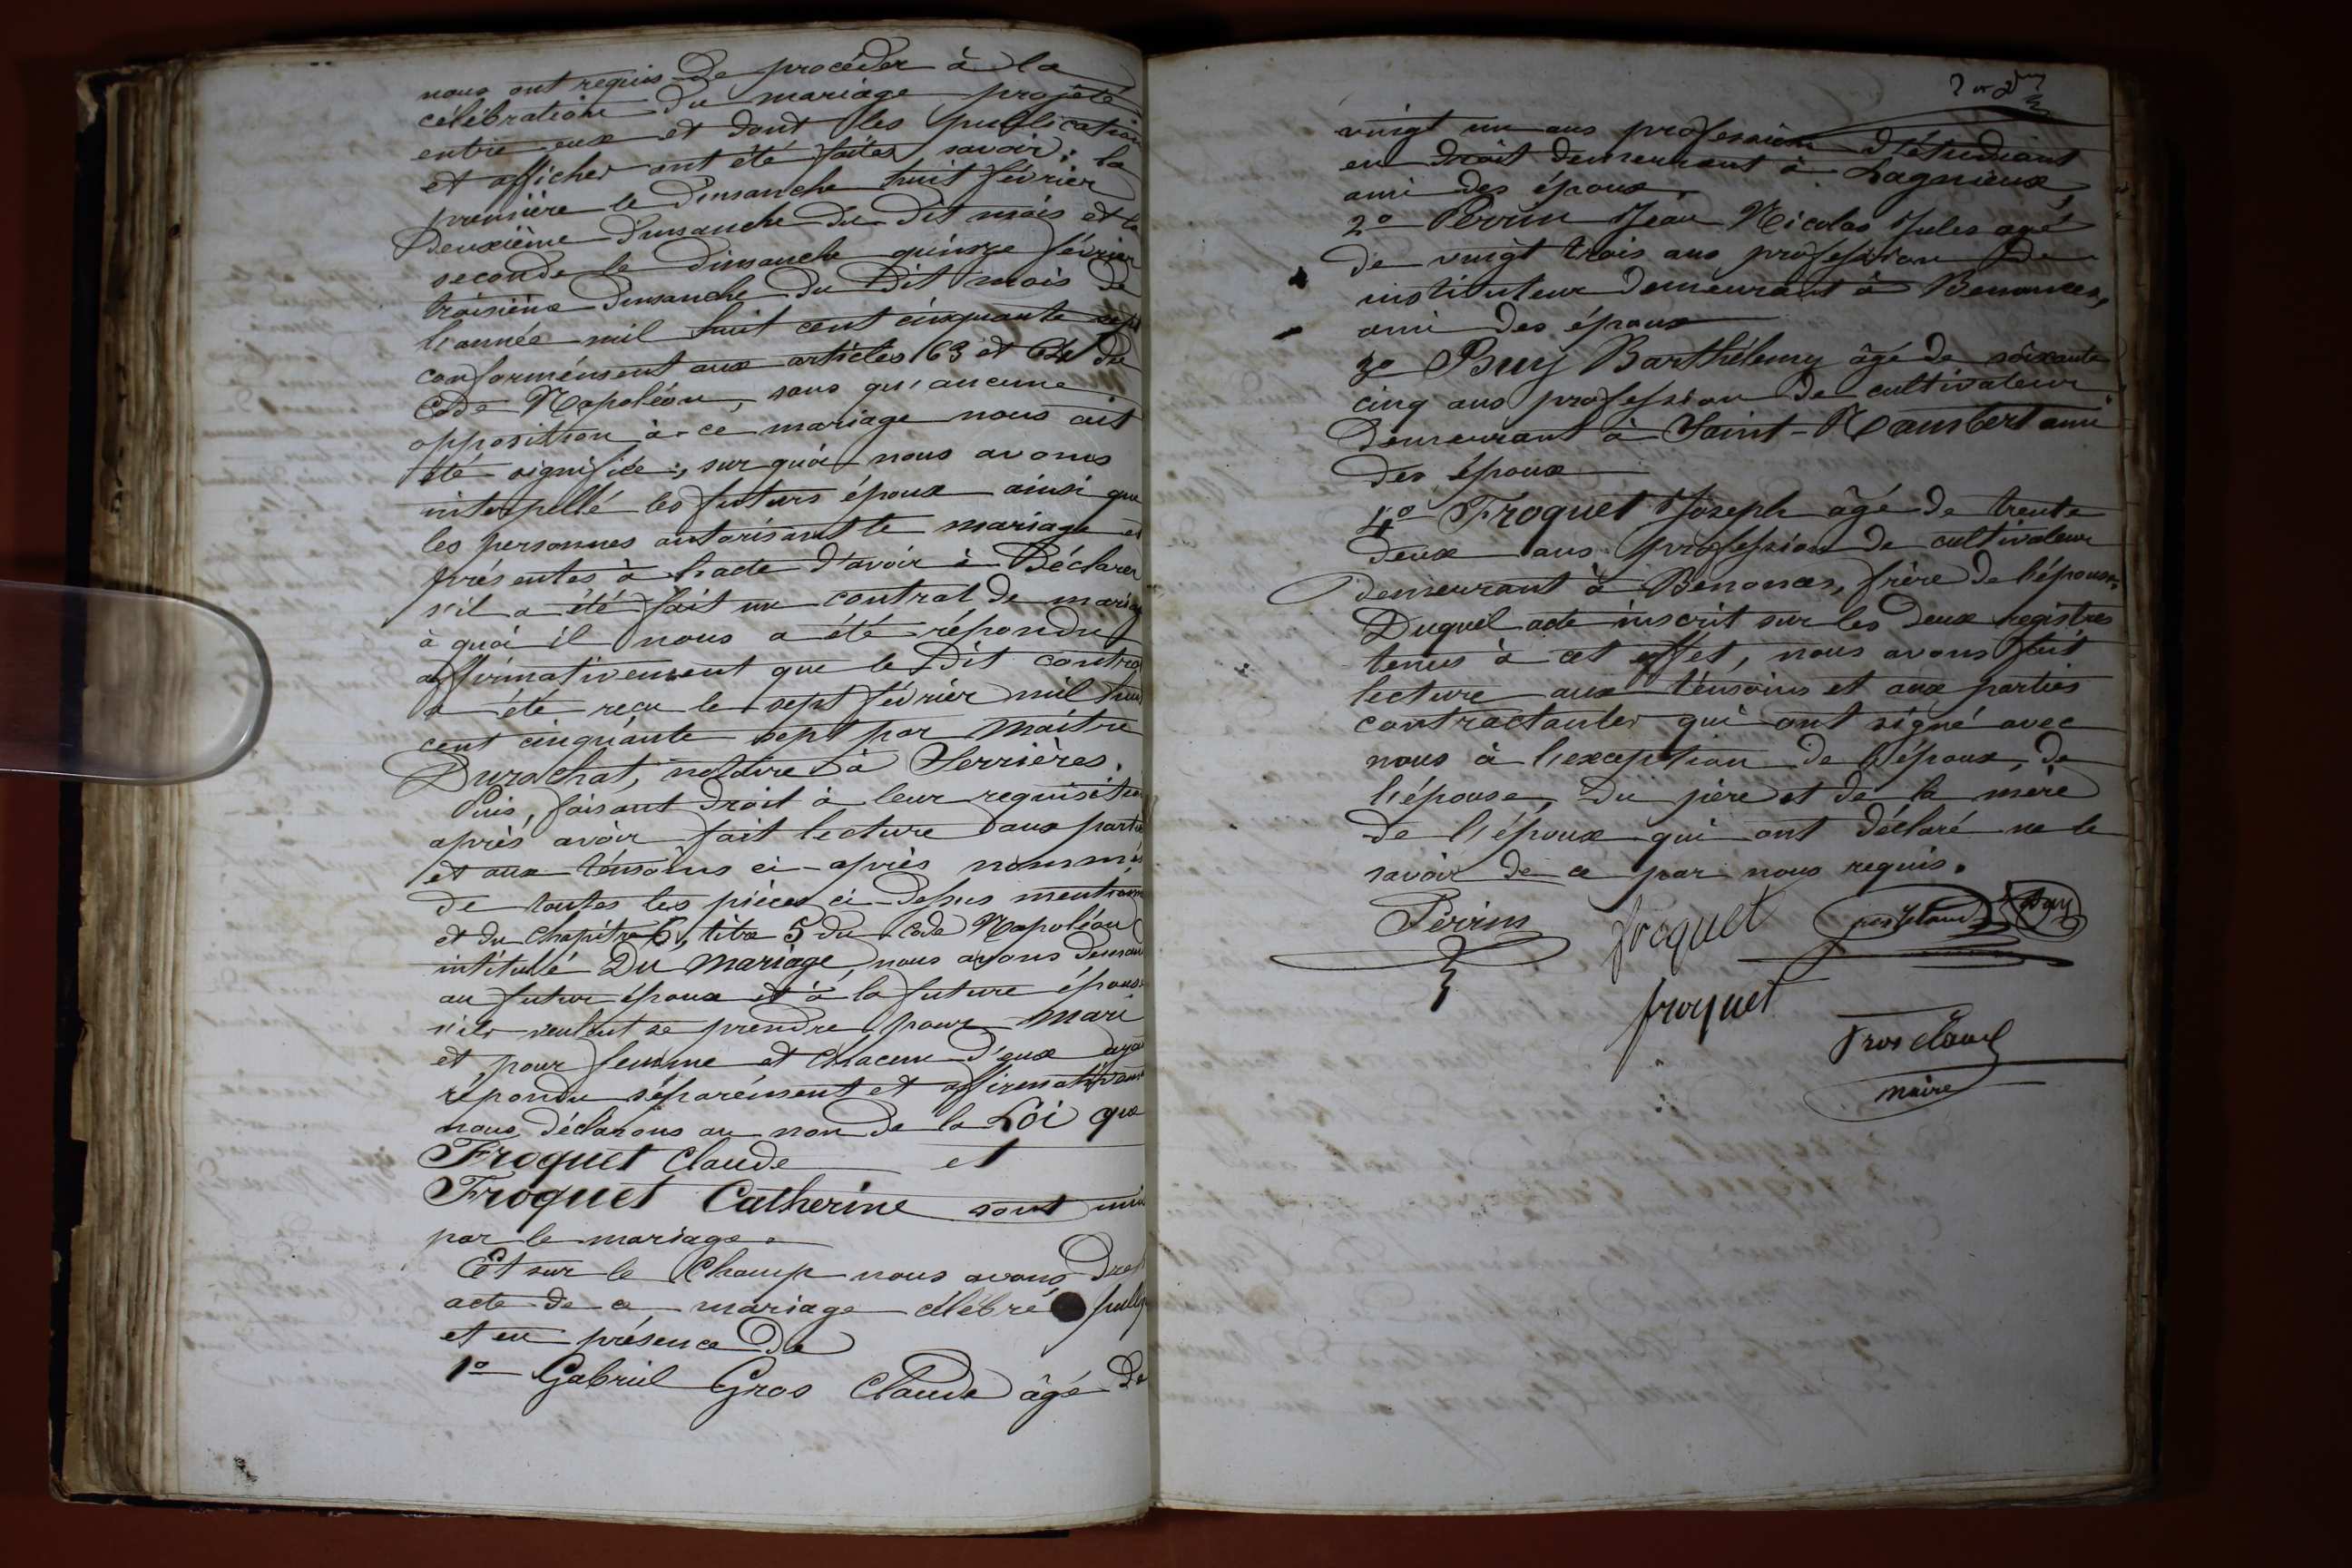 nous ont requis de procéder à la
célébration du mariage projeté
entre eux et dont les publication
et affiches ont été faites savoir: la
première le dimanche huit février
deuxième dimanche du dit mois et la
seconde le dimanche quinze février
troisième dimanche du dit mois de
l'année mil huit cent cinquante sept
conformément aux articles 63 et 64 du
Code Napoléon, sans qu'aucune
opposition à ce mariage nous ait
été signifiée; sur quoi nous avons
interpellé les futurs époux ainsi que
les personnes autorisant le mariage et
présentes à l'acte d'avoir à Déclarer
s'il a été fait un contrat de mariag
à quoi il nous a été répondu
affirmativement que le dit contra
a été reçu le sept février mil hui
cent cinquante sept par Maître
Durochat, notaire à Serrières.
Puis, faisant droit à leur requisition
après avoir fait lecture aux partie
et aux témoins ci-après nommés
de toutes les pièces ci-dessus mentionn
et du chapitre 6, titre 5 du Code Napoléon
intitulé Du Mariage, nous avons deman
au futur époux et à la future épouse
s'ils veulent se prendre pour mari
et pour femme et chacun d'eux aya
répondu séparément et affirmativem
nous déclarons au nom de la Loi que
Froquet Claude et
Froquet Catherine sont unis
par le mariage.
Et sur le Champ nous avons Dres
acte de ce mariage célébré publiq
et en présence de
1º Gabriel Gros Claude âgé de
vingt un ans profession d'étudiant
en droit demeurant à Lagnieux,
ami des époux,
2º Perrin Jean Nicolas Jules agé
de vingt trois ans profession de
instituteur demeurant à Benonces,
ami des époux
3º Buy Barthélemy âgé de soixante
cinq ans profession de cultivateur
demeurant à Saint-Rambert ami
des époux
4º Froquet Joseph âgé de trente
deux ans profession de cultivateur
Demeurant à Benonces, frère de l'épouse
Duquel acte inscrit sur les deux registres
tenus à cet effet, nous avons fait
lecture aux témoins et aux parties
contractantes qui ont signé avec
nous à l'exception de l'époux, de
l'épouse, du père et de la mère
de l'époux qui ont déclaré ne le
savoir de ce par nous requis.
Perrin froquet Buy
froquet
Grosclaud
maire